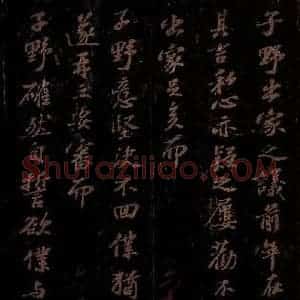 子野出家之議前年在
具言私心亦疑之屢勸不
出家足矣而
子野意堅決不回僕猶
遂再三發書而
子野確然自誓欲僕与
Shufaziliao.com